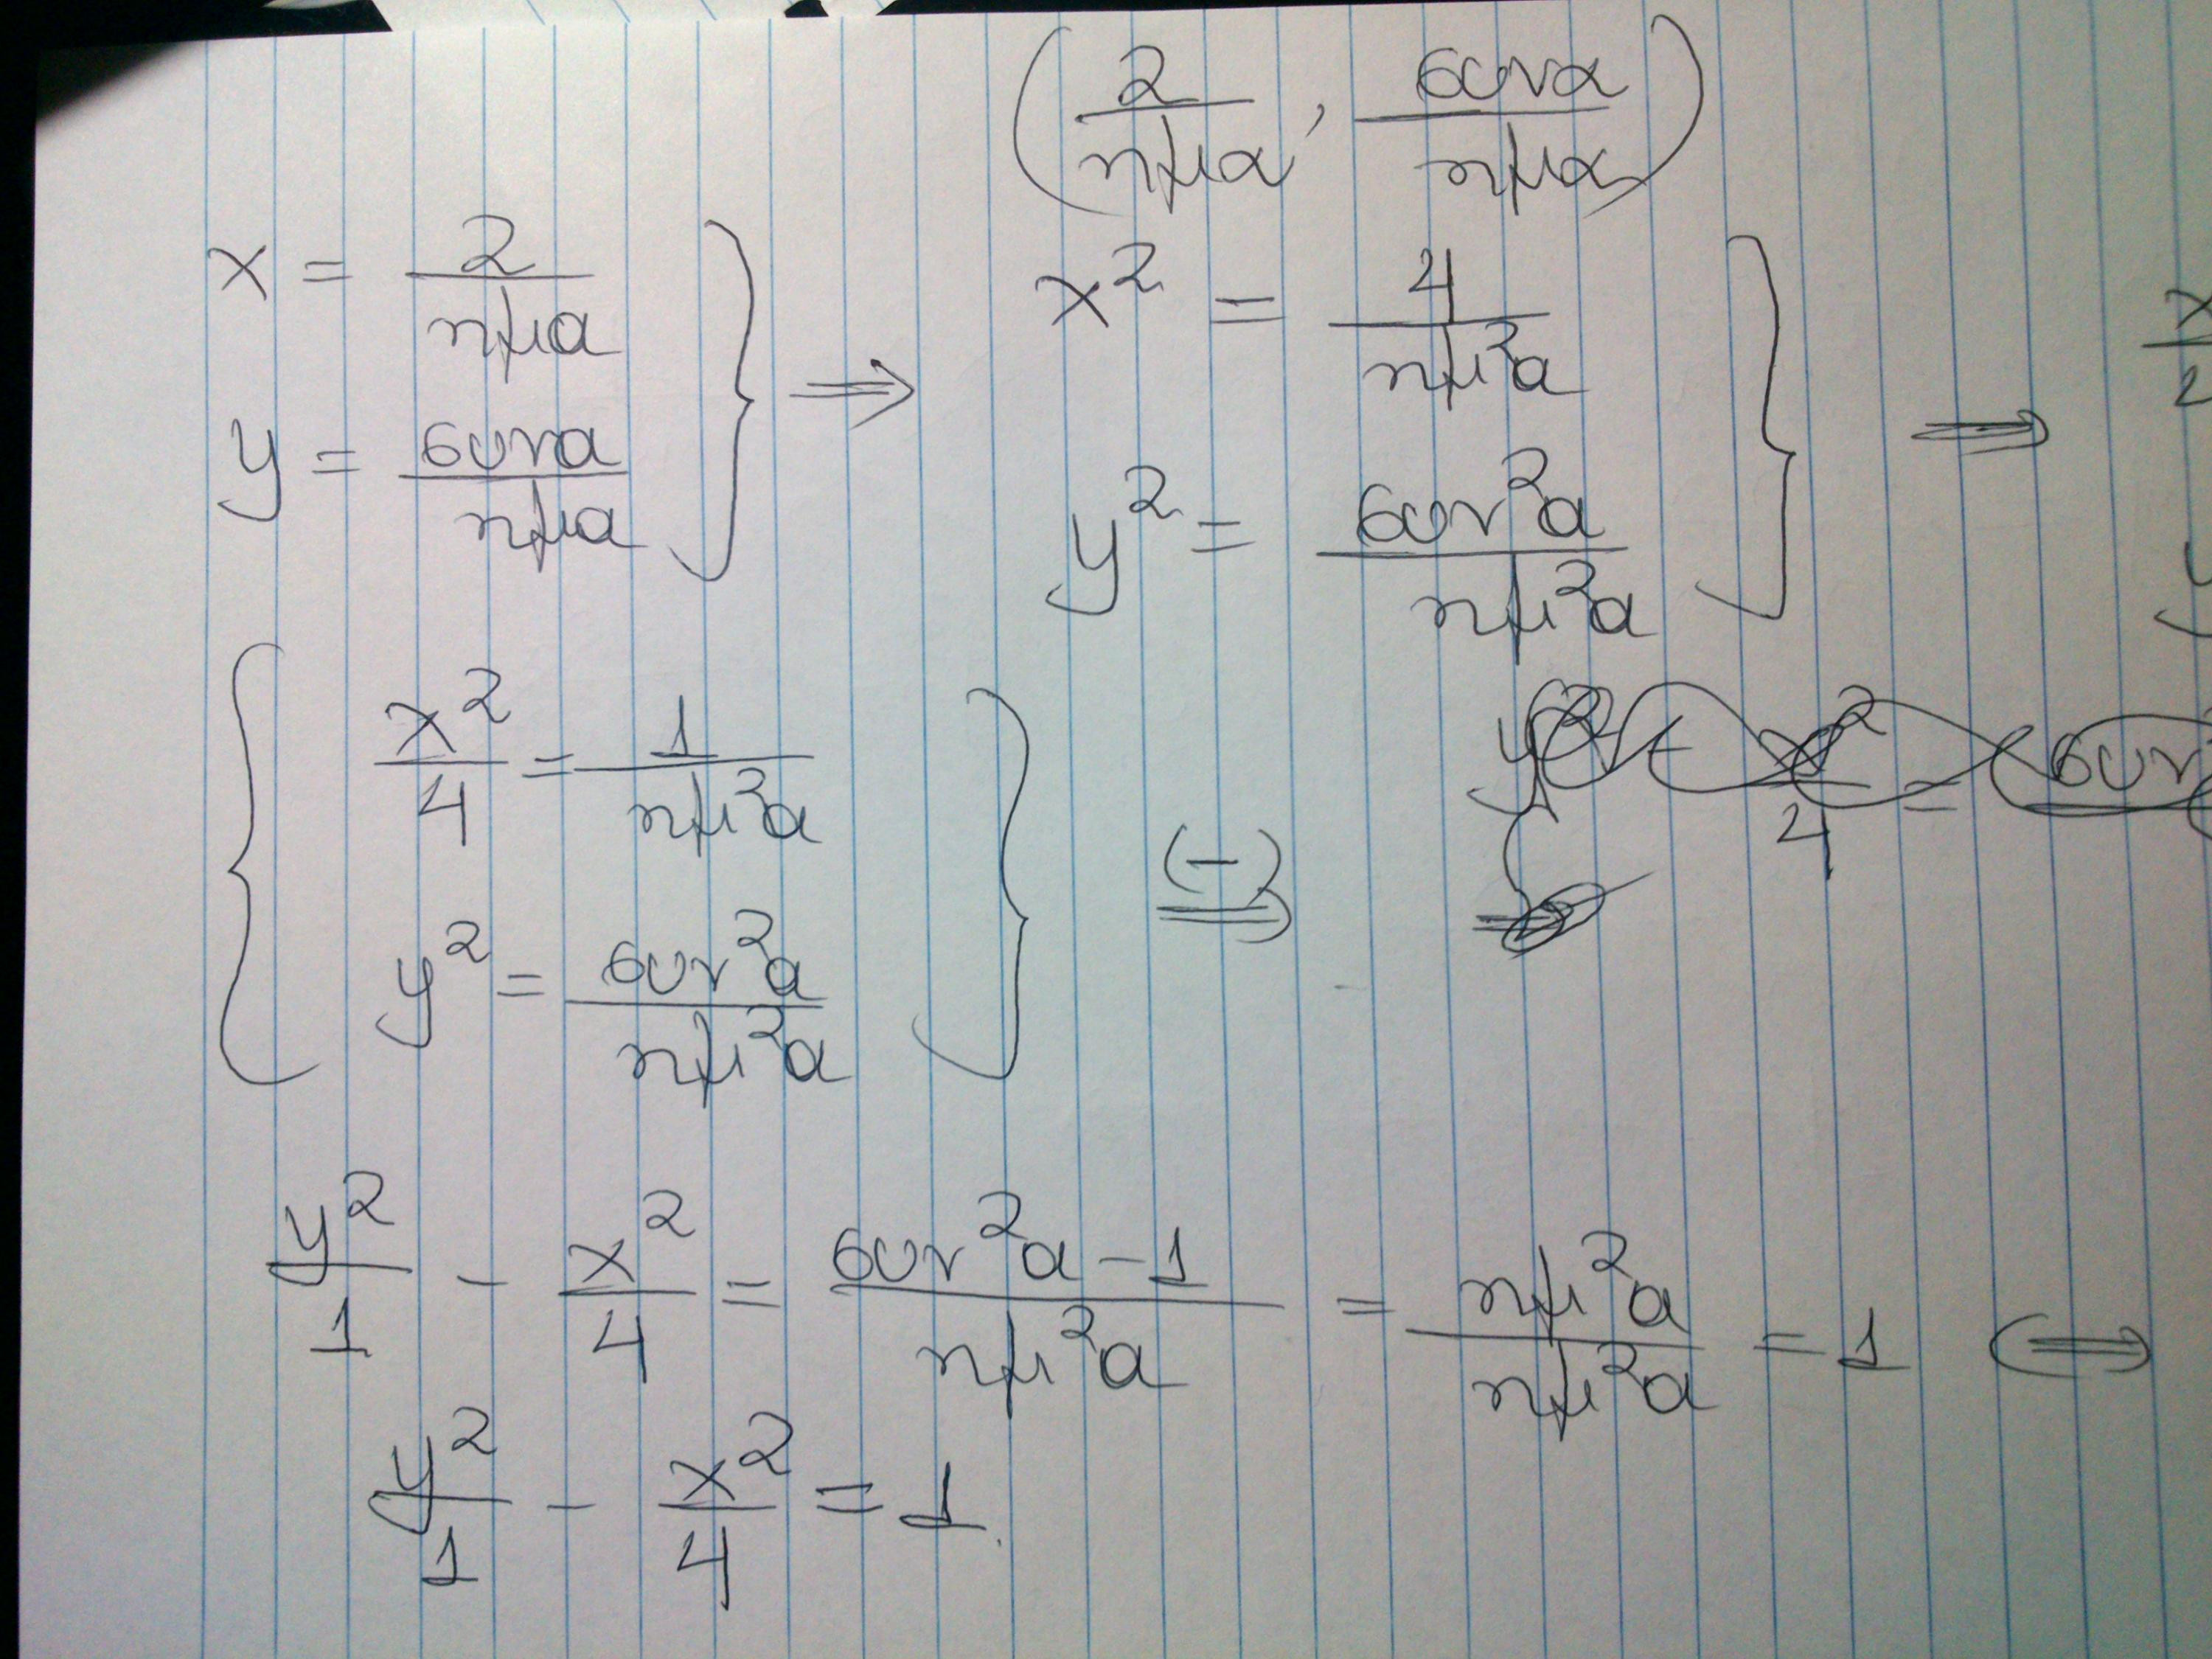 (2/ημα, συνα/ημα)
x = 2/ημα
y = συνα/ημα } ⇒
x² = 4/ημ²α
y² = συν²α/ημ²α } ⇒
{ x²/4 = 1/ημ²α
y² = συν²α/ημ²α } (-) ⇒
y²/1 - x²/4 = συν²α - 1/ημ²α = ημ²α/ημ²α = 1 ⇔
y²/1 - x²/4 = 1.